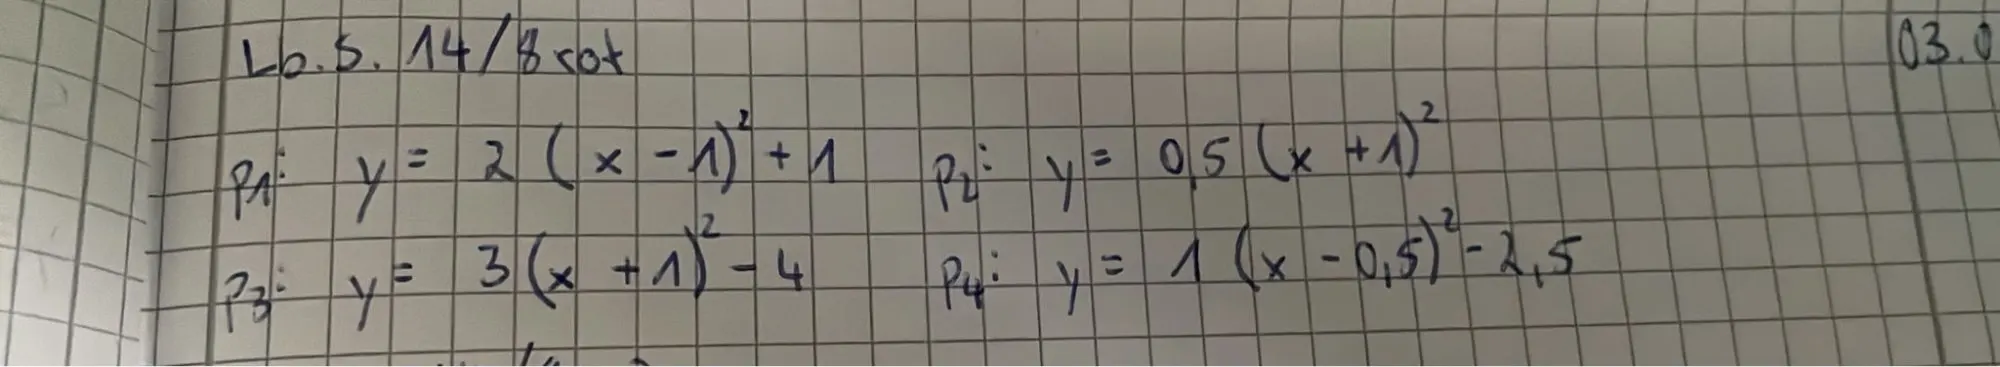 Lb. S. 14/8 rot 03.0
P1: y = 2 (x - 1)² + 1 P2: y = 0,5 (x + 1)²
P3: y = 3 (x + 1)² - 4 P4: y = 1 (x - 0,5)² - 2,5